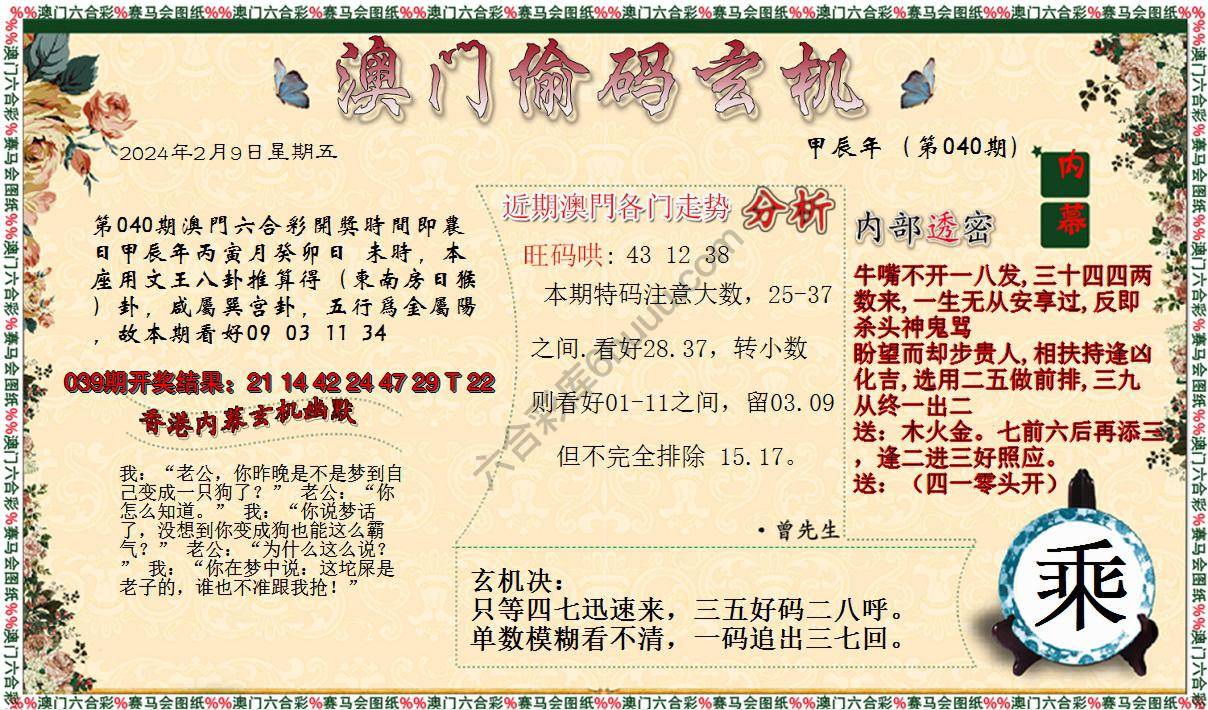 %%澳门六合彩%赛马会图纸%%澳门六合彩%赛马会图纸%%澳门六合彩%赛马会图纸%%澳门六合彩%赛马会图纸%%澳门六合彩%赛马会图纸%%澳门六合彩%赛马会图纸%%
澳门偷码玄机
2024年2月9日星期五
甲辰年（第040期）
内幕
第040期澳門六合彩開獎時間即農
日甲辰年丙寅月癸卯日 未時，本
座用文王八卦推算得（東南房日猴
）卦，咸屬巽宫卦，五行爲金屬陽
，故本期看好09 03 11 34
039期开奖结果：21 14 42 24 47 29 T 22
香港内幕玄机幽默
我：“老公，你昨晚是不是梦到自
己变成一只狗了？” 老公：“你
怎么知道。” 我：“你说梦话
了，没想到你变成狗也能这么霸
气？” 老公：“为什么这么说？
” 我：“你在梦中说：这坨屎是
老子的，谁也不准跟我抢！”
近期澳門各门走势 分析
旺码哄: 43 12 38
本期特码注意大数，25-37
之间.看好28.37，转小数
则看好01-11之间，留03.09
但不完全排除 15.17。
·曾先生
内部透密
牛嘴不开一八发,三十四四两
数来,一生无从安享过,反即
杀头神鬼骂
盼望而却步贵人,相扶持逢凶
化吉,选用二五做前排,三九
从终一出二
送：木火金。七前六后再添三
，逢二进三好照应。
送：（四一零头开）
玄机决：
只等四七迅速来，三五好码二八呼。
单数模糊看不清，一码追出三七回。
乘
%%澳门六合彩%赛马会图纸%%澳门六合彩%赛马会图纸%%澳门六合彩%赛马会图纸%%澳门六合彩%赛马会图纸%%澳门六合彩%赛马会图纸%%澳门六合彩%赛马会图纸%%